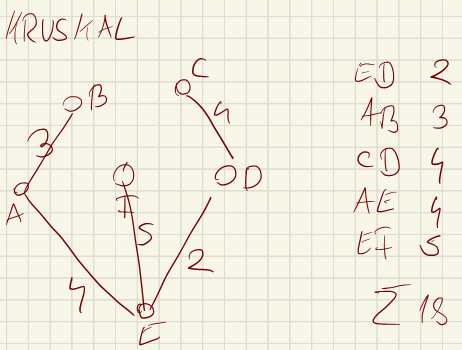 KRUSKAL
C
B
4
3
D
A
F
5
2
4
E
ED 2
AB 3
CD 4
AE 4
EF 5
Σ 18